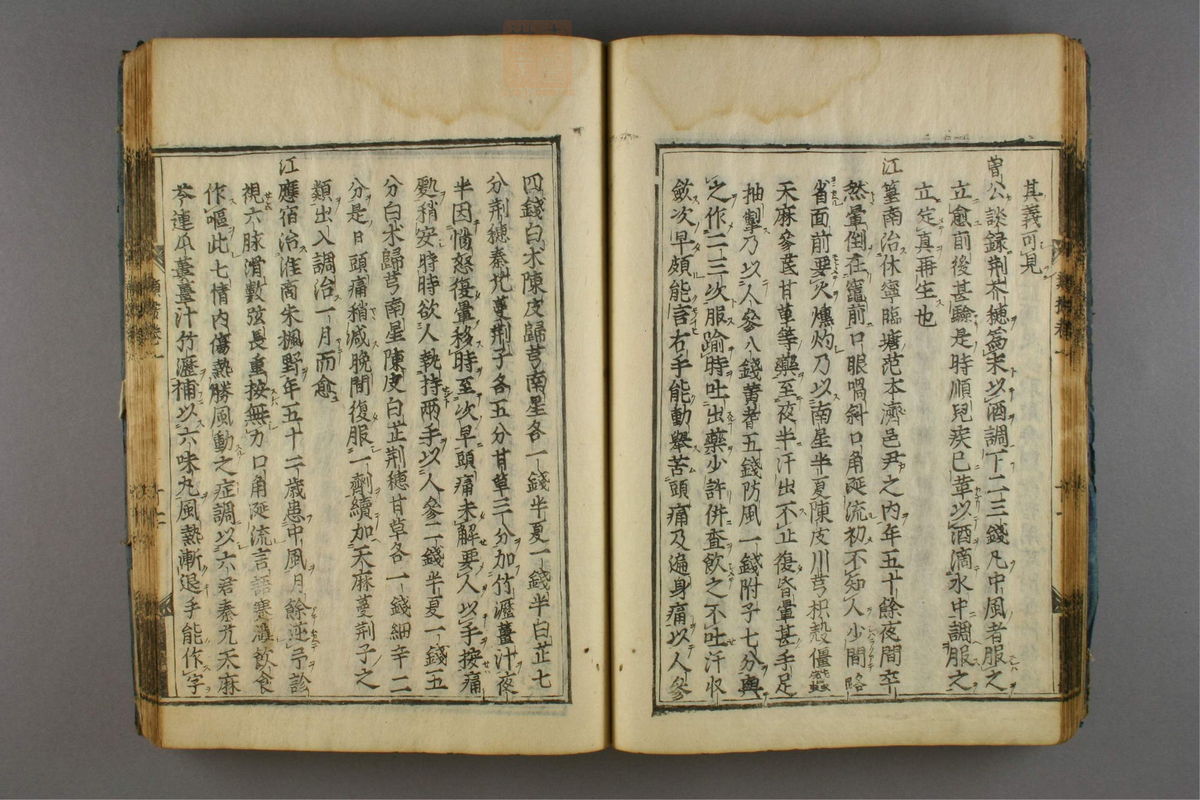 其義可見
曽公談録荆芥穂為末以酒調下二三錢凡中風者服之
立愈前後甚驗是時順兒疾已革以酒滴水中調服之
立定真再生也
江篁南治休寧臨塘范本濟邑尹之内年五十餘夜間卒
然暈倒在竈前口眼喎斜口角涎流初不知人少間略
省面前要火燻灼乃以南星半夏陳皮川芎枳殻僵蠶
天麻參芪甘草等藥至夜半汗出不止復昏暈甚手足
抽掣乃以人參八錢黄耆五錢防風一錢附子七分與
之作二三次服踰時吐出藥少許併査飲之不吐汗收
斂次早頗能言右手能動舉苦頭痛及遍身痛以人參
四錢白术陳皮歸芎南星各一錢半夏一錢半白芷七
分荆穂秦艽蔓荆子各五分甘草三分加竹瀝薑汁夜
半因惱怒復暈移時至次早頭痛未解要人以手按痛
𠢐稍安時時欲人執持兩手以人參二錢半夏一錢五
分白术歸芎南星陳皮白芷荆穂甘草各一錢細辛二
分是日頭痛稍減晚間復服一劑續加天麻蔓荆子之
類出入調治一月而愈
江應宿治淮商朱楓野年五十二歳患中風月餘逆予診
視六脉滑數弦長重按無力口角涎流言語蹇澁飲食
作嘔此七情内傷熱勝風動之症調以六君秦艽天麻
芩連瓜蔞薑汁竹瀝補以六味丸風熱漸退手能作字